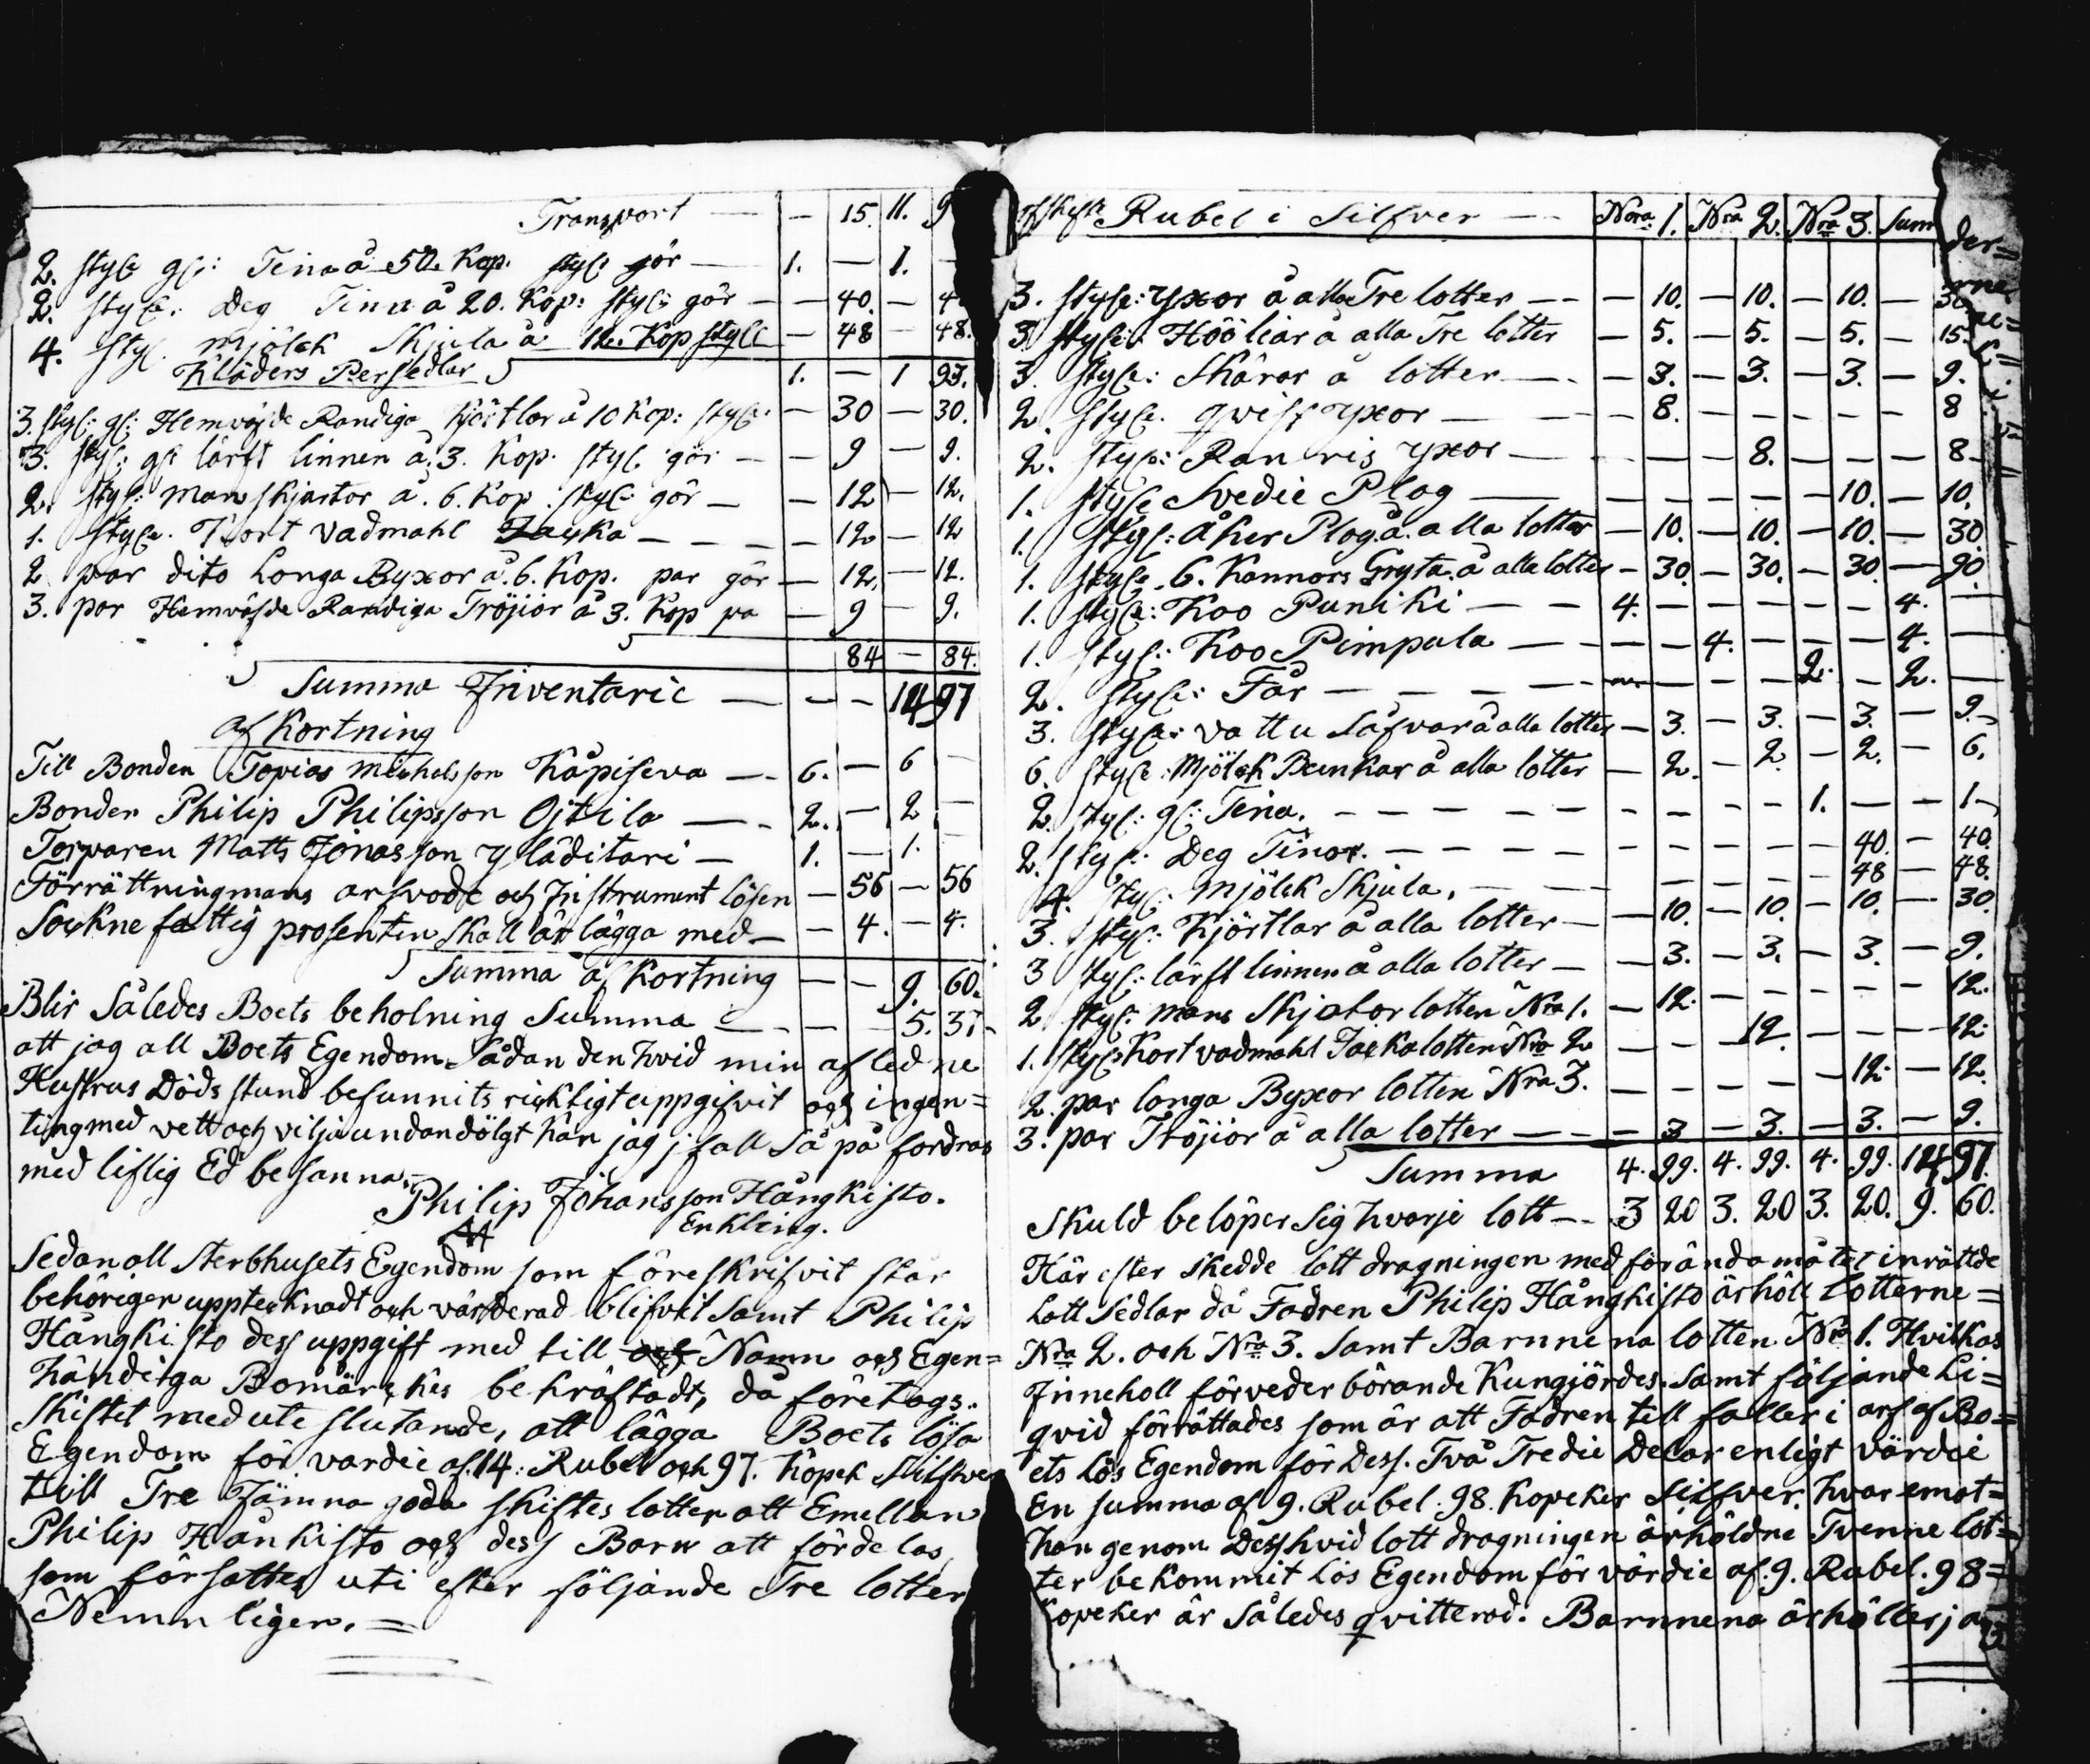 Transport — — 15. 11. 9
2. styck gl: Tina å 50. Kop. styck gör — 1. — 1. —
2. styck: Deg Tina å 20. Kop: styck gör — — 40. — 4
4. styck Mjölck Skjula å 12. Kop styck — 48 — 48.
Kläders Persedlar 1. — 1 93.
3. styck: gl: Hemväfde Randiga Kjörtlar å 10 Kop: styck — 30 — 30.
3. styck: gl: lärft linnen å. 3. Kop. styck gör — — 9 — 9.
2. styck: mans skjortor å. 6. Kop. styck gör — — 12 — 12.
1. styck. Kort vadmahl Jacka — — — — 12 — 12
2 par dito Longa Byxor å. 6. Kop. par gör — 12. — 12.
3. par Hemväfde Randiga Tröjior å 3. Kop pa — 9 — 9.
84 — 84.
Summa Inventarie — — — 14 97
Af Kortning
Till Bonden Topias Michelsson Kåpiseva — 6. — 6 —
Bonden Philip Philipsson Ojtila — — 2. — 2 —
Torparen Matts Jönasson Yläditari — 1. — 1. —
Förrättningmans arfvode och Instrument lösen — 56 — 56
Sockne fattig prosenten skall är lägga med — — 4. — 4.
Summa af Kortning — — 9. 60.
Blir Således Boets beholning Summa — — — 5. 37.
att jag all Boets Egendom Sådan den hvid min afledne
Hustrus Döds stund befunnits ricktigt uppgifvit och ingen=
ting med vett och vilja undandölgt kan jag j fall Så på fordras
med liflig Ed besanna.
Philip Johansson Hångkisto.
Enkling.
Sedan all Sterbhusets Egendom som föreskrifvit står
behörigen upptecknadt och värderad blifvit Samt Philip
Hångkisto dess uppgift med till Namn och Egen=
händiga Bomärckes bekräftadt, då företogs..
Skiftet med ute slutande, att lägga Boets lösa
Egendom för vardie af 14: Rubel och 97. Kopek Silfwer
till Tre Jämna goda skiftes lotter att Emellan
Philip Hånkisto och dess Barn att fördelas,
som försattes uti efter följande Tre lotter
Nemnligen. =
Rubel i Silfver — Nra 1. Nra 2. Nra 3. Sum
3. styck: Yxor å alla Tre lotter — — — 10. — 10. — 10. — 30
3. styck: Hööliar å alla Tre lotter — 5. — 5. — 5. — 15.
3. styck: Skäror å lotter — — — 3. — 3. — 3. — 9.
2. styck. qvist yxor — — — — 8. — — — — — 8
2. styck: Ran ris yxor — — — — 8. — — — 8
1. styck Svedie Plog — — — — — — 10. — 10.
1. styck: Åker Plog. å. alla lotter — 10. — 10. — 10. — 30
1. styck. 6. Kannors Gryta. å alla lotter — 30. — 30. — 30. — 90
1. styck: Koo Puniki — — 4. — — — — — 4. —
1. styck: Koo Pimpula — — — — 4. — — — 4. —
2. styck: Får — — — — — — — 2. — 2. —
3. styck: vattu Såfvar å alla lotter — 3. — 3. — 3. — 9.
6. styck: Mjölck Bunkar å alla lotter — 2. — 2. — 2. — 6.
2. styck: gl: Tina. — — — — — — — — 1. — — 1 —
2. styck: Deg Tinor. — — — — — — — — 40. — 40.
4. styck: mjölck Skjula. — — — — — — — 48 — 48.
3. styck: Kjörtlar å alla lotter — — 10. — 10. — 10. — 30.
3 styck: lärft linnen å alla lotter — — 3. — 3. — 3. — 9.
2 styck: mans Skjortor lotten Nra 1. — 12. — — — — — 12.
1. styck Kort vadmahl Jacka lotten Nra 2 — — — 12. — — — 12.
2. par longa Byxor lotten Nra 3. — — — — — 12. — 12.
3. par Tröjior å alla lotter — — — 3 — 3. — 3. — 9.
Summa 4. 99. 4. 99. 4. 99. 14 97.
Skuld belöper Sig hvarje lott — 3 20 3. 20 3. 20. 9. 60.
Här efter skedde lott dragningen med för ändamålet inrättde
Lott Sedlar då Fadren Philip Hångkisto ärhölt Lotterne=
Nra 2. och Nra 3. Samt Barnnena lotten Nra 1. Hvilkas
Jnneholl förvederbörande Kungjördes. Samt följande Li=
qvid förrättades som är att Fadren till faller i arf af Bo=
ets Lös Egendom för Dess. Två Tredie Delar enligt värdie
En Summa af 9. Rubel. 98. Kopeker Silfver. hvar emot=
han genom Dess hvid lott dragningen ärhöldne Tvenne lot=
ter bekommit Lös Egendom för värdie af. 9. Rubel. 98=
Kopeker är Således qvitterad. Barnnena ärhåller ja